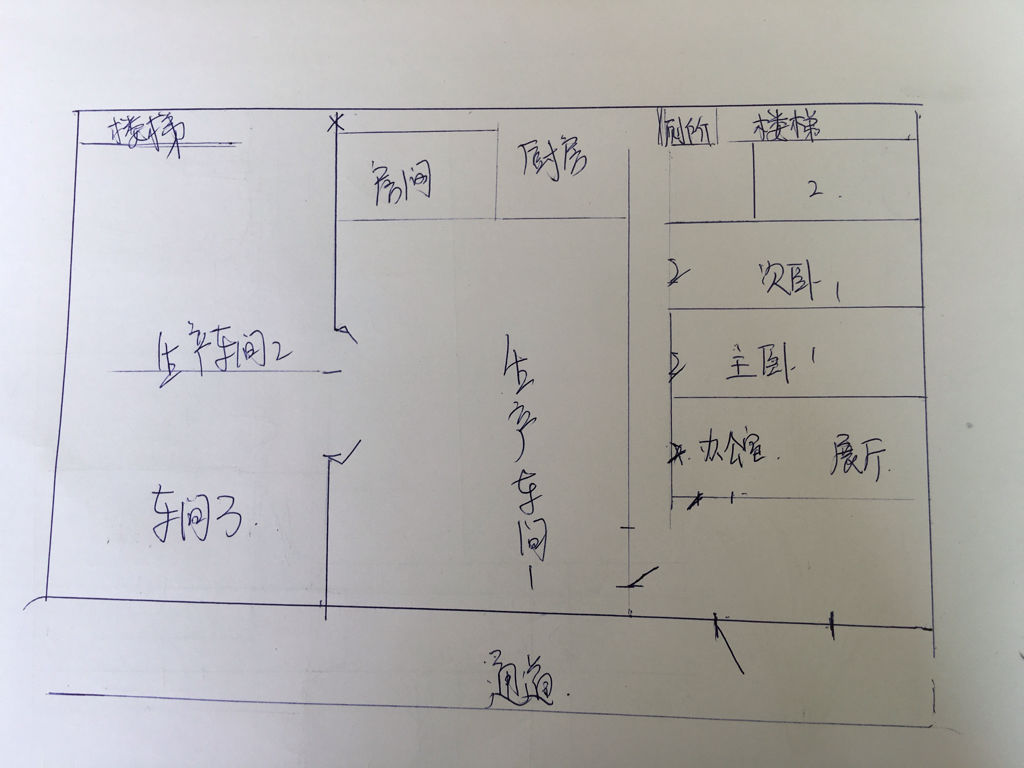 楼梯
房间
厨房
厕所
楼梯
2.
次卧1
主卧1
办公室.
展厅.
生产车间2
生产车间1
车间3.
通道.